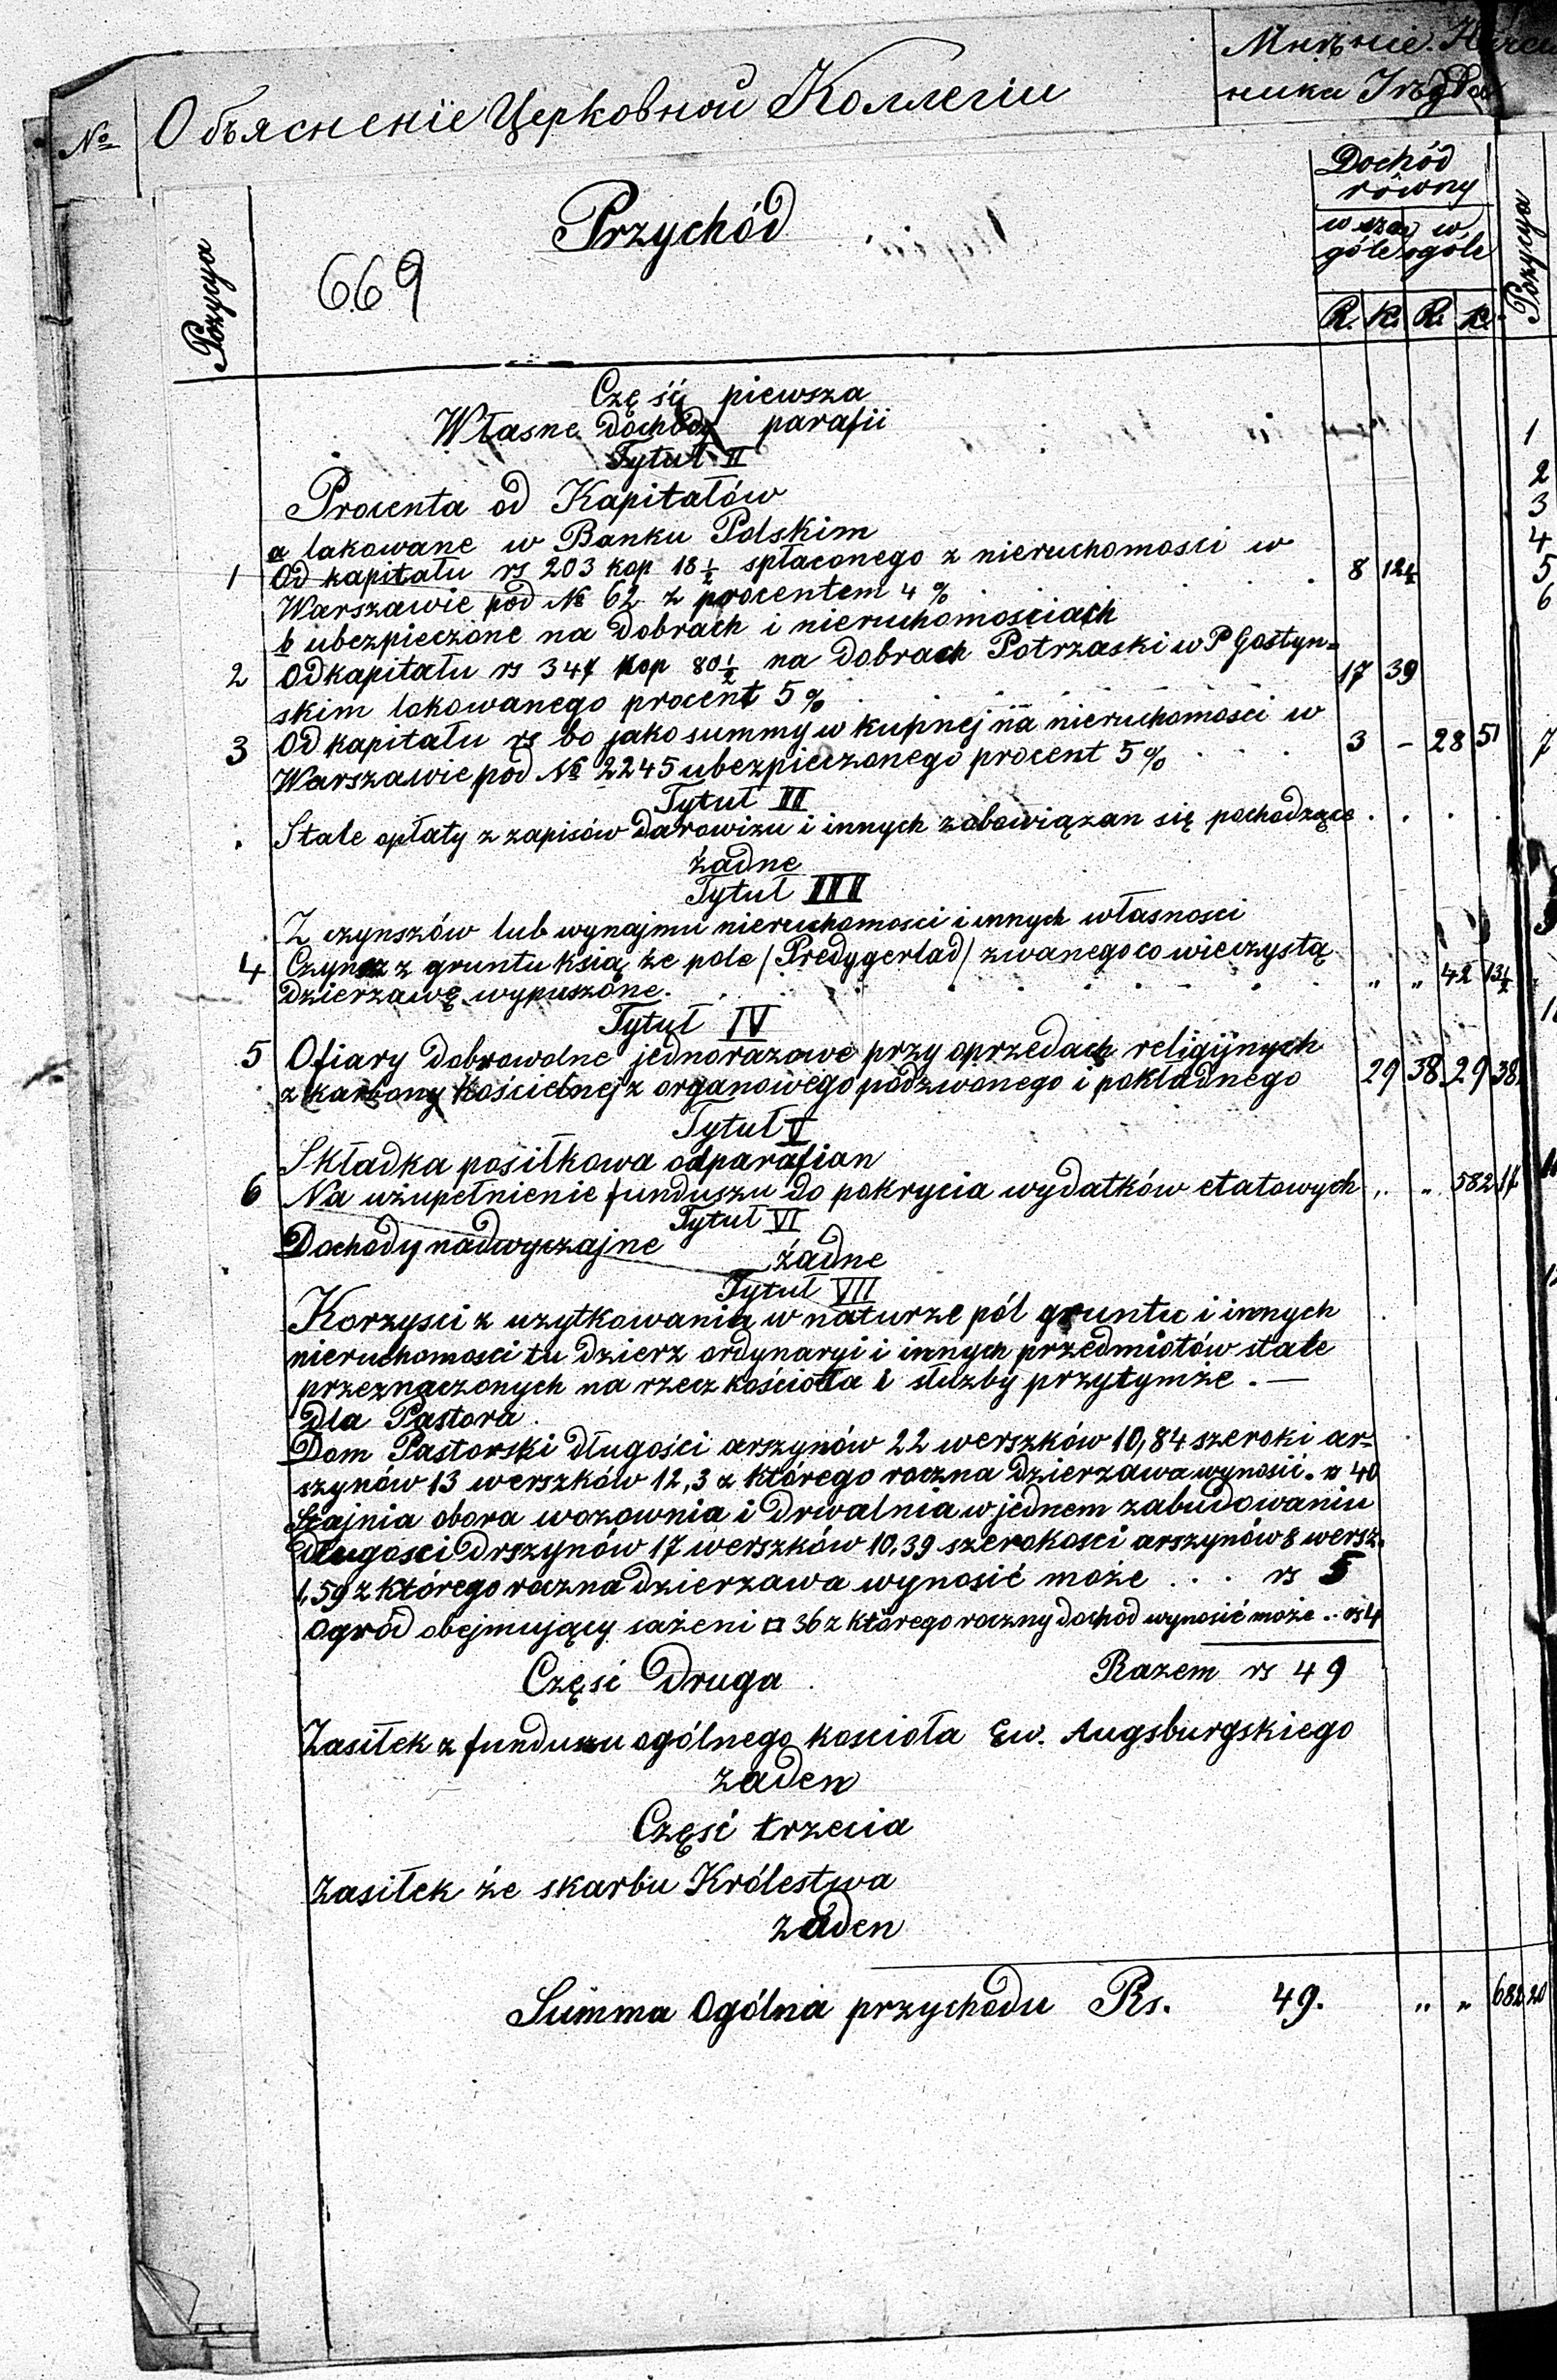 № Объясненіе Церковной Коллегіи
Мнѣніе
ника
Pozycya
669
Przychód
Dochód
równy
w szcze w
góle ogóle
R. K. R. K.
Pozycya
Częśćy piewsza
Własne dochody parafii
Tytuł II
Procenta od Kapitałów
a lakowane w Banku Polskim
1 Od kapitału rs 203 kop 18 1/2 spłaconego z nieruchomosci w 8 12 1/2
Warszawie pod № 62 z procentem 4 %
b ubezpieczone na dobrach i nieruchomościach
2 Od kapitału rs 347 kop 80 1/2 na dobrach Potrzaski w P Gostyn= 17 39
skim lokowanego procent 5 %
3 Od kapitału rs 60 jako summy w kupnej na nieruchomości w 3 – 28 51
Warszawie pod № 2245 ubezpieczonego procent 5 %
Tytuł III
Stałe opłaty z zapisów darowizu i innych zobowiązan się pochodzące
żadne
Tytuł III
Z czynszów lub wynajmu nieruchomosci i innych własnosci
4 Czynsz z gruntu ksią że pole /Predygerlad/ zwanego co wieczystą " " 42 13 1/2
dzierzawę wypuszone.
Tytuł IV
5 Ofiary dobrowolne jednorazowe przy oprzedach religijnych 29 38 29 38
z karbony kościelnej z organowego podzwonego i pokładnego
Tytuł V
Składka posiłkowa od parafian
6 Na użupełnienie funduszu do pokrycia wydatków etatowych " " 582 17
Tytuł VI
Dochody nadwyczajne
żadne
Tytuł VII
Korzysci z uzytkowania w naturze pól gruntu i innych
nieruchomosci tu dzierz ordynaryi i innych przedmiotów stale
przeznaczonych na rzecz kościoła i służby przytymże . —
Dla Pastora
Dom Pastorski długości arszynów 22 werszków 10,84 szeroki ar-
szynów 13 werszków 12,3 z którego roczna dzierzawa wynosić . rs 40
Stajnia obora wozownia i drwalnia w jednem zabudowaniu
długosci Drszynów 17 werszków 10,39 szerokosci arszynów 8 wersz.
1,59 z którego roczna dzierzawa wynosić może . . . rs 5
Ogród obejmujący sażeni □ 36 z którego roczny dochód wynosić może .. rs 4
Częsć Druga Razem rs 49
Zasiłek z funduszu ogólnego koscioła Ew. Augsburgskiego
zaden
Częsć trzecia
Zasiłek że skarbu Królestwa
zaden
Summa Ogólna przychodu Rs. 49. " " 682 20